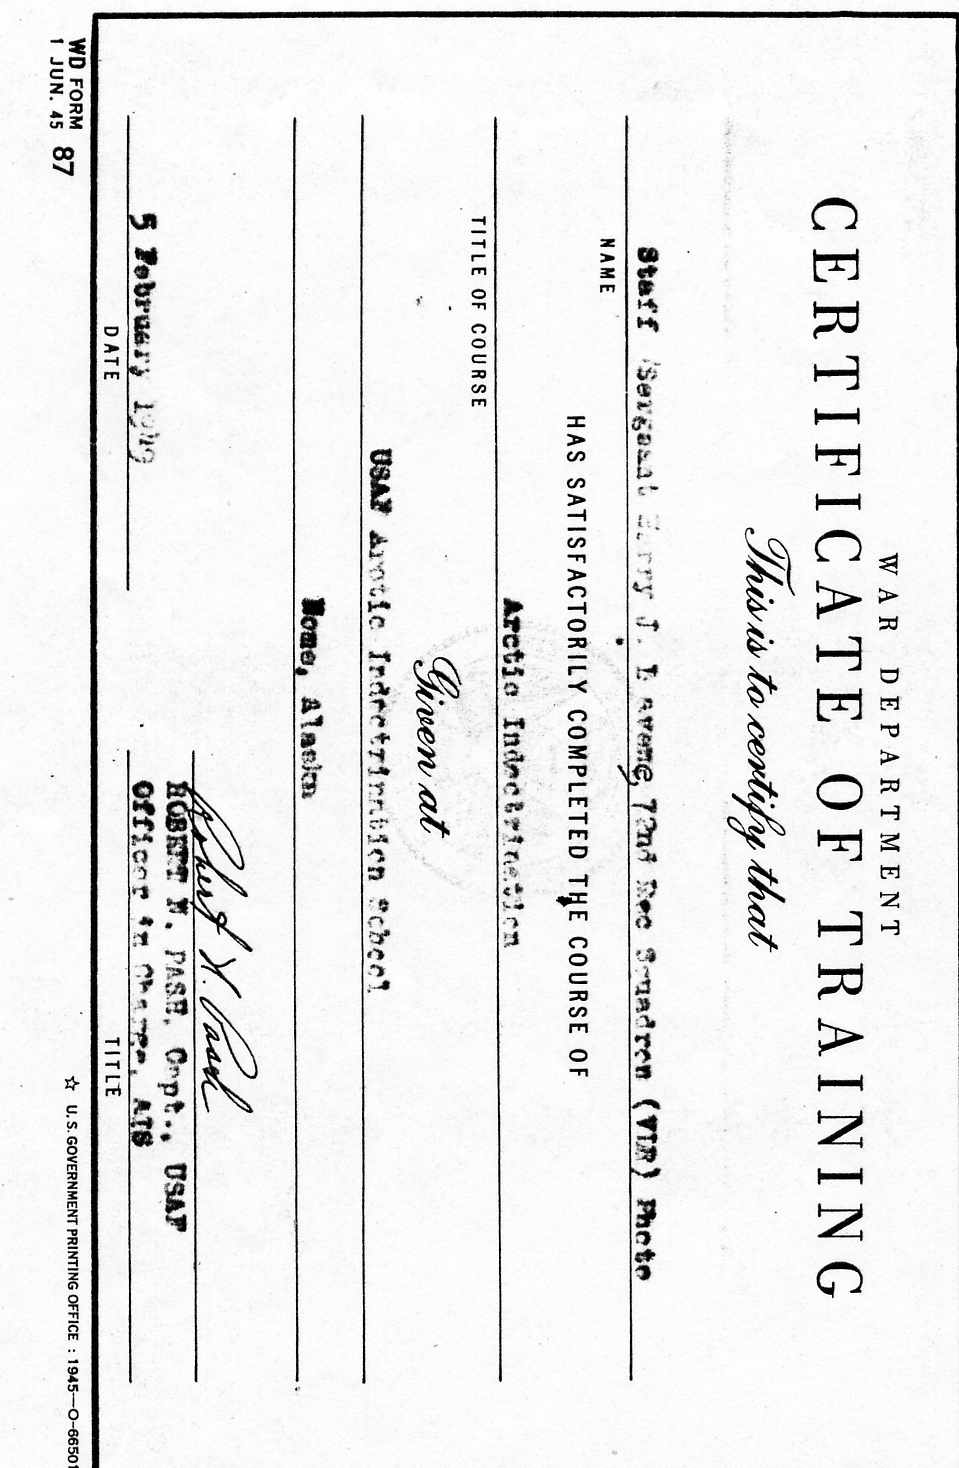 WAR DEPARTMENT
CERTIFICATE OF TRAINING
This is to certify that
Staff Sergeant Harry J. 72nd Rec Squadron (VLR) Photo
NAME
HAS SATISFACTORILY COMPLETED THE COURSE OF
Arctic Indoctrination
TITLE OF COURSE
Given at
USAF Arctic Indoctrination School
Nome, Alaska
Robert N. Pash
ROBERT N. PASH, Capt., USAF
5 February 1949
Officer in Charge, AIS
DATE
TITLE
WD FORM 87
1 JUN. 45
☆ U.S. GOVERNMENT PRINTING OFFICE : 1945—O-66501